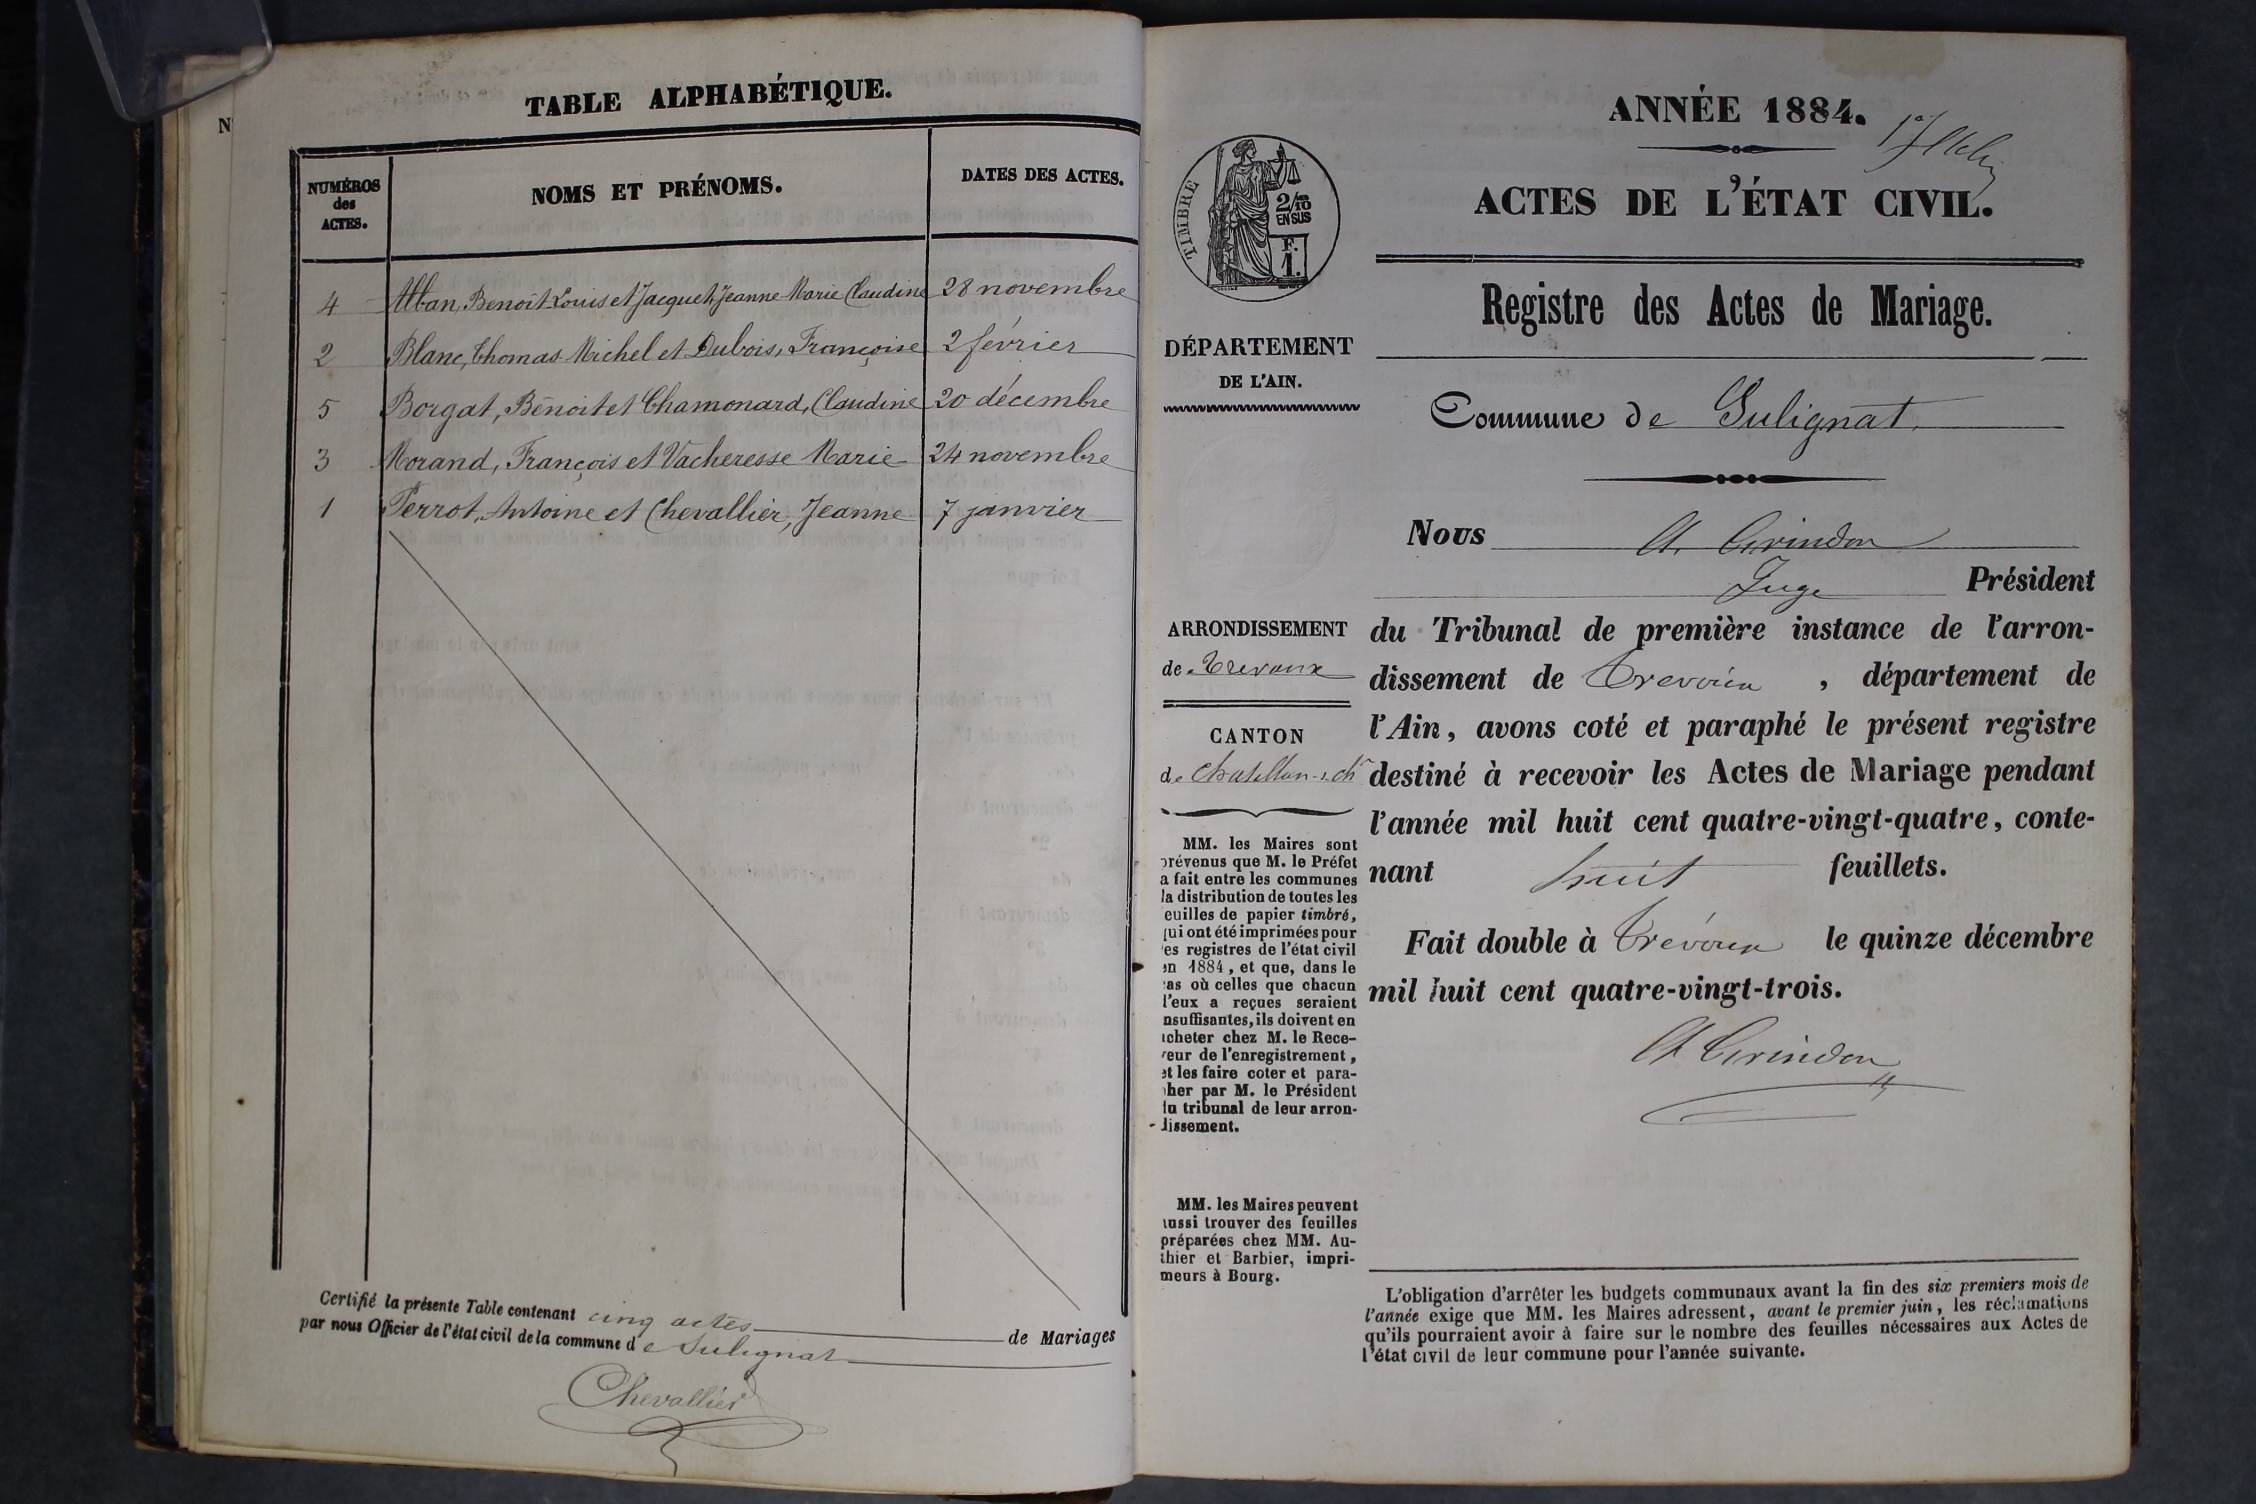 N
TABLE ALPHABÉTIQUE.
NUMÉROS
des
ACTES.
NOMS ET PRÉNOMS.
DATES DES ACTES.
4 Alban, Benoît Louis et Jacquet, Jeanne-Marie Claudine 28 novembre
2 Blanc, Thomas Michel et Dubois, Françoise 2 février
5 Borgat, Benoît et Chamonard, Claudine 20 décembre
3 Morand, François et Vacheresse Marie 24 novembre
1 Perrot, Antoine et Chevallier, Jeanne 7 janvier
Certifié la présente Table contenant cinq actes de Mariages
par nous Officier de l'état civil de la commune de Sulignat
Chevallier
ANNÉE 1884.
ACTES DE L'ÉTAT CIVIL.
Registre des Actes de Mariage.
TIMBRE
2/10
EN SUS
F.
1.
DÉPARTEMENT
DE L'AIN.
ARRONDISSEMENT
de Trevoux
CANTON
de Chatillon-s.-ch
MM. les Maires sont
prévenus que M. le Préfet
a fait entre les communes
la distribution de toutes les
euilles de papier timbré,
qui ont été imprimées pour
es registres de l'état civil
en 1884, et que, dans le
as où celles que chacun
d'eux a reçues seraient
nsuffisantes, ils doivent en
acheter chez M. le Rece-
veur de l'enregistrement,
et les faire coter et para-
pher par M. le Président
du tribunal de leur arron-
dissement.
MM. les Maires peuvent
aussi trouver des feuilles
préparées chez MM. Au-
thier et Barbier, impri-
meurs à Bourg.
Commune de Sulignat.
Nous A. Grindon
Juge Président
du Tribunal de première instance de l'arron-
dissement de Trevoux, département de
l'Ain, avons coté et paraphé le présent registre
destiné à recevoir les Actes de Mariage pendant
l'année mil huit cent quatre-vingt-quatre, conte-
nant huit feuillets.
Fait double à Trévoux le quinze décembre
mil huit cent quatre-vingt-trois.
A Grindon
L'obligation d'arrêter les budgets communaux avant la fin des six premiers mois de
l'année exige que MM. les Maires adressent, avant le premier juin, les réclamations
qu'ils pourraient avoir à faire sur le nombre des feuilles nécessaires aux Actes de
l'état civil de leur commune pour l'année suivante.